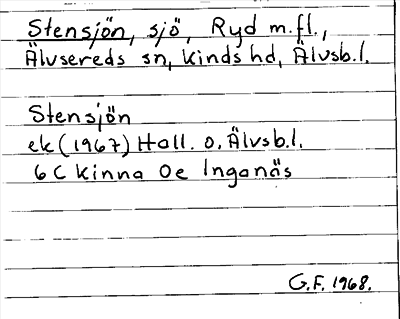 Stensjön, sjö, Ryd m.fl.,
Älvsereds sn, Kinds hd, Älvsb.l.
Stensjön
ek (1967) Hall. o. Älvsb.l.
6 C Kinna Oe Inganäs
G.F. 1968.